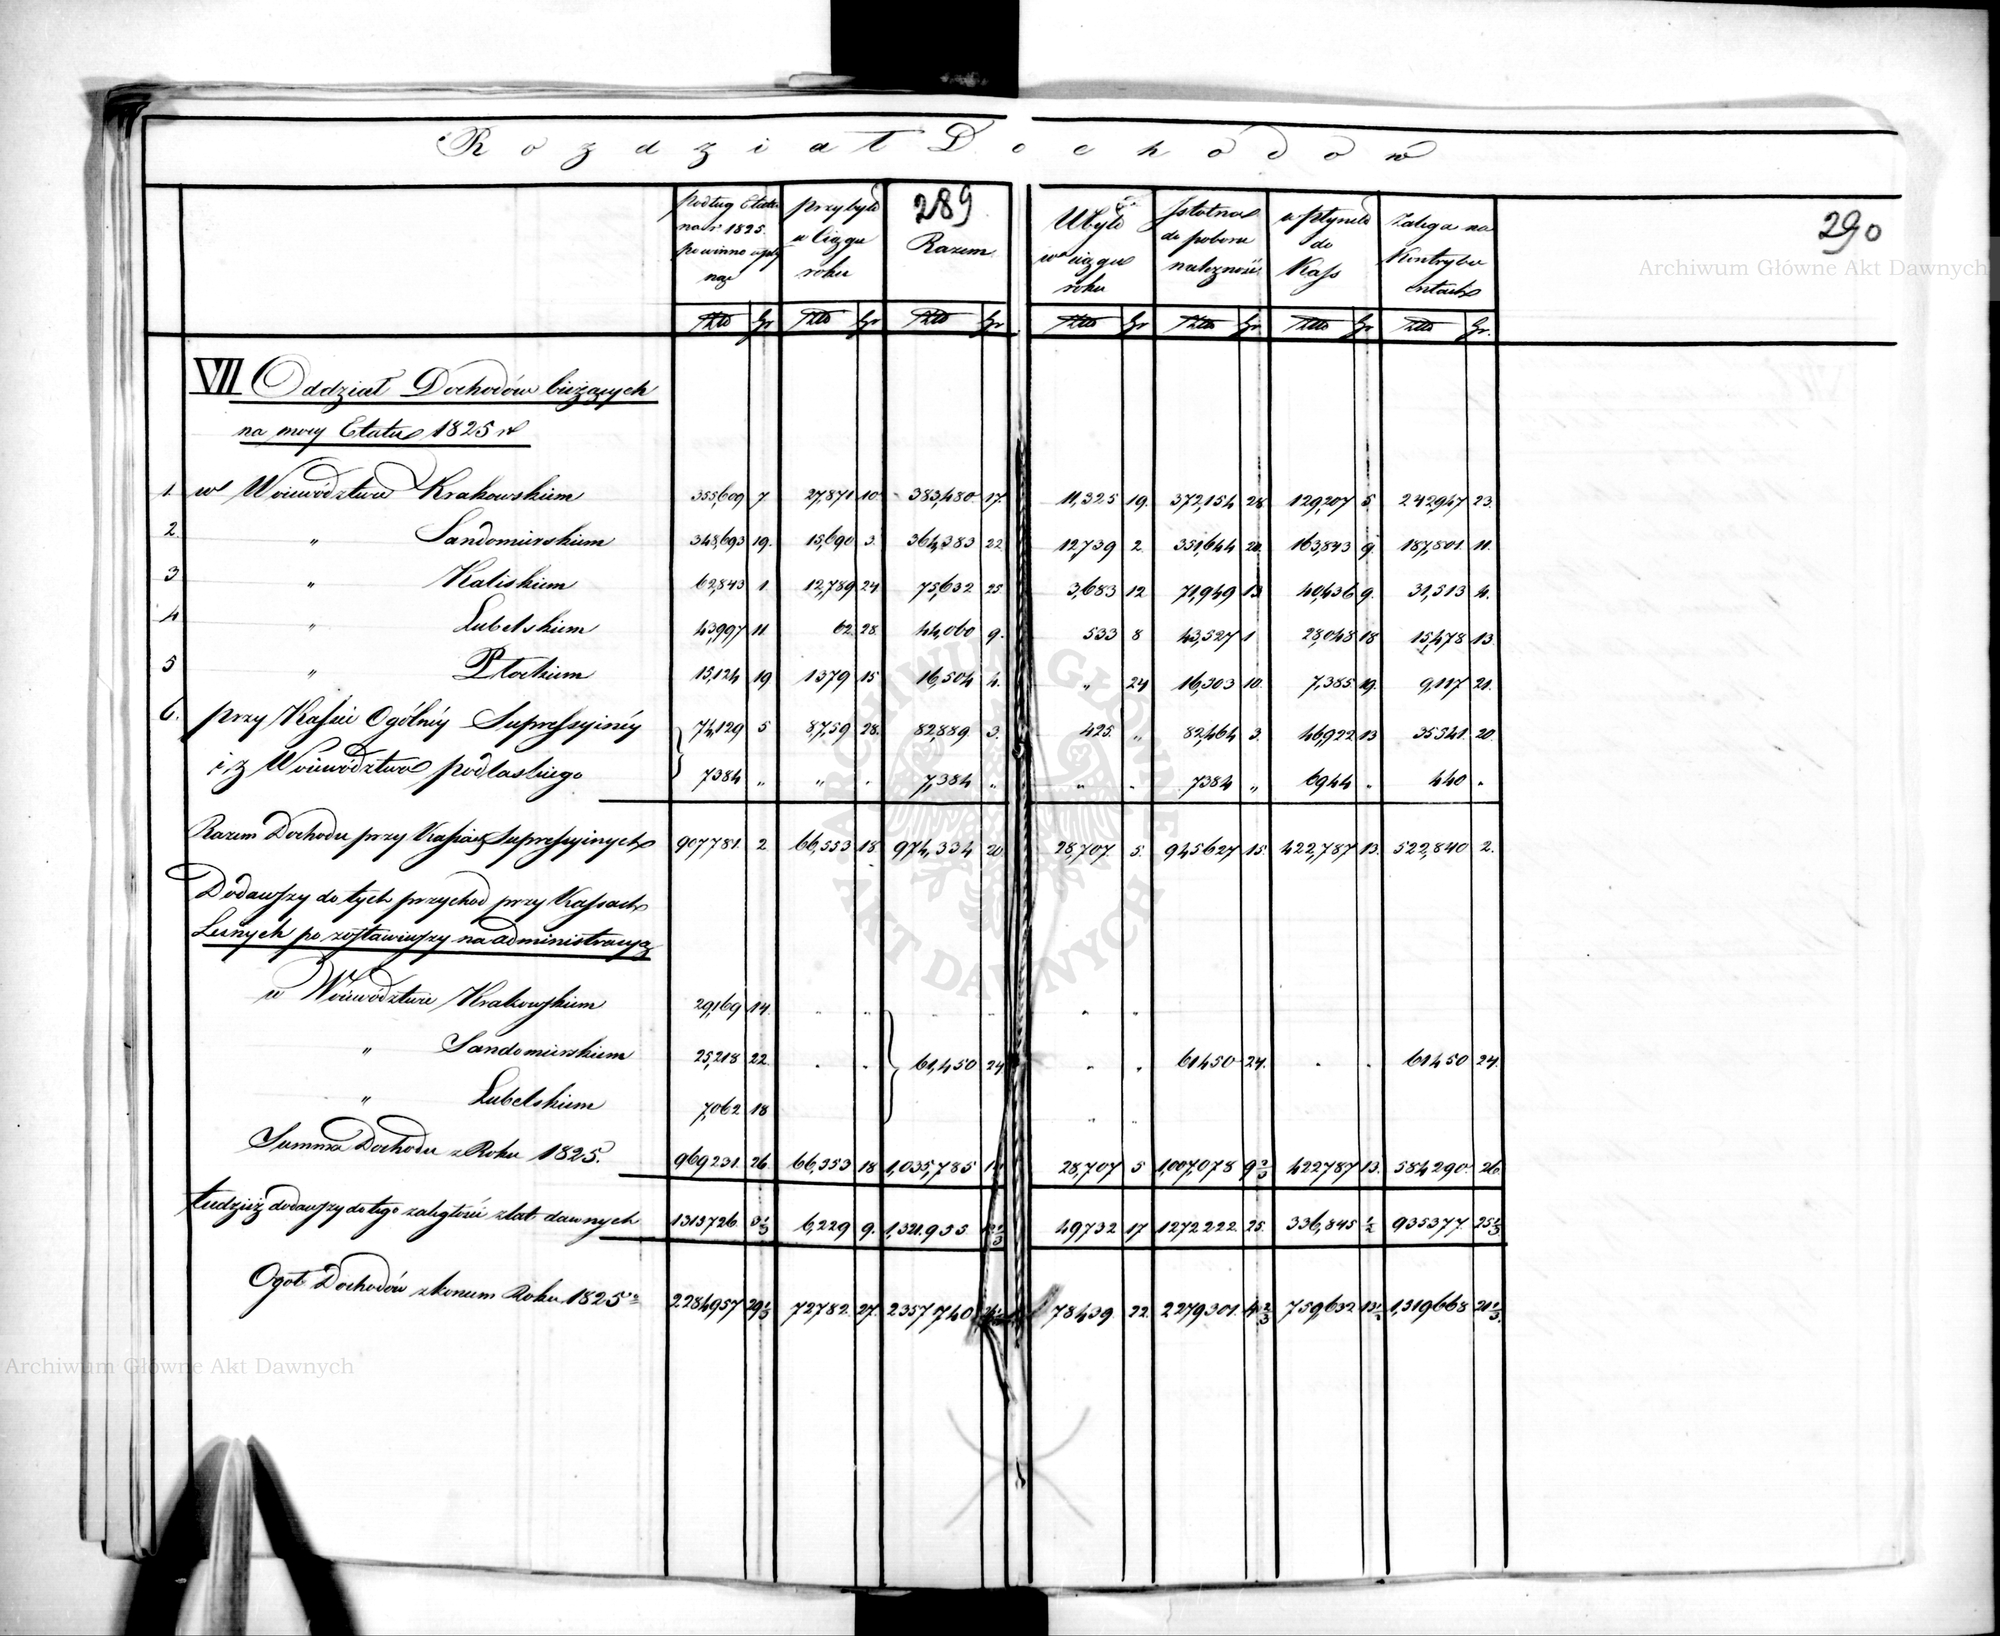 Rozdział Dochodów
289
290
podług Etatu na r 1825. powinno wpłynąć
przybyło w ciągu roku
Razem
Ubyło w ciągu roku
Istotna do poboru należność
wpłynęło do Kass
Zalega na Kontrybuentach
Złto Gr Złto Gr Złto Gr Złto Gr Złto Gr Złto Gr Złto Gr.
VII Oddział Dochodów bieżących
na mocy Etatu 1825 r
1. w Woiewództwie Krakowskiem 355,609 7 27,871 10 383,480 17. 11,325 19. 372,154 28 129,207 5. 242,947 23.
2. " Sandomirskiem 348,693 19. 15,690 3. 364,383 22 12,739 2. 351,644 20. 163,843 9. 187,801 11.
3 " Kaliskiem 62,843 1 12,789 24 75,632 25. 3,683 12 71,949 13 40,436 9. 31,513 4.
4 " Lubelskiem 43,997 11. 62. 28. 44,060 9. 533 8 43,527 1 28,048 18 15,478 13.
5 " Płockiem 15,124 19 1379 15 16,504 4. " 24 16,503 10. 7,385 19. 9,117 21.
6. przy Kassie Ogólnéy Supressyinéy 74,129 5 8,759 28. 82,889 3. 425. " 82,464 3. 46,922 13 35541. 20.
i z Woiewództwa podlaskiego 7384 " " . 7,384 " " . 7384 " 6944 . 440 "
Razem Dochodu przy Kassach Supressyinych 907781. 2 66,553 18. 974,334 20. 28,707. 5. 945627 15. 422,787 13. 522,840 2.
Dodawszy do tych przychod przy Kassach
Leśnych po zostawiwszy na administracyą
w Woiewództwie Krakowskiem 29,169 14. " "
" Sandomirskiem 25,218 22. 61,450 24 " " 61450 24. . . 61450 24.
" Lubelskiem 7,062 18 " "
Summa Dochodu z Roku 1825. 969231. 26. 66,553 18 1,035,785 28,707 5 1,007,078 9 2/3 422787 13. 584290. 26.
tudzież dodawszy do tego zaległości z lat dawnych 1315726. 3 1/3 6,229 9. 1,321.955. 49732 17 1272222. 25. 336,845 1/2 935377. 25 1/3
Ogół Dochodów z końcem Roku 1825 2284957 29 1/3 72782. 27. 2357,740 78439. 22. 2279301. 4 2/3 759,632 13 1/2 1,519668 21 1/3.
Archiwum Główne Akt Dawnych
Archiwum Główne Akt Dawnych
ARCHIWUM GŁÓWNE AKT DAWNYCH